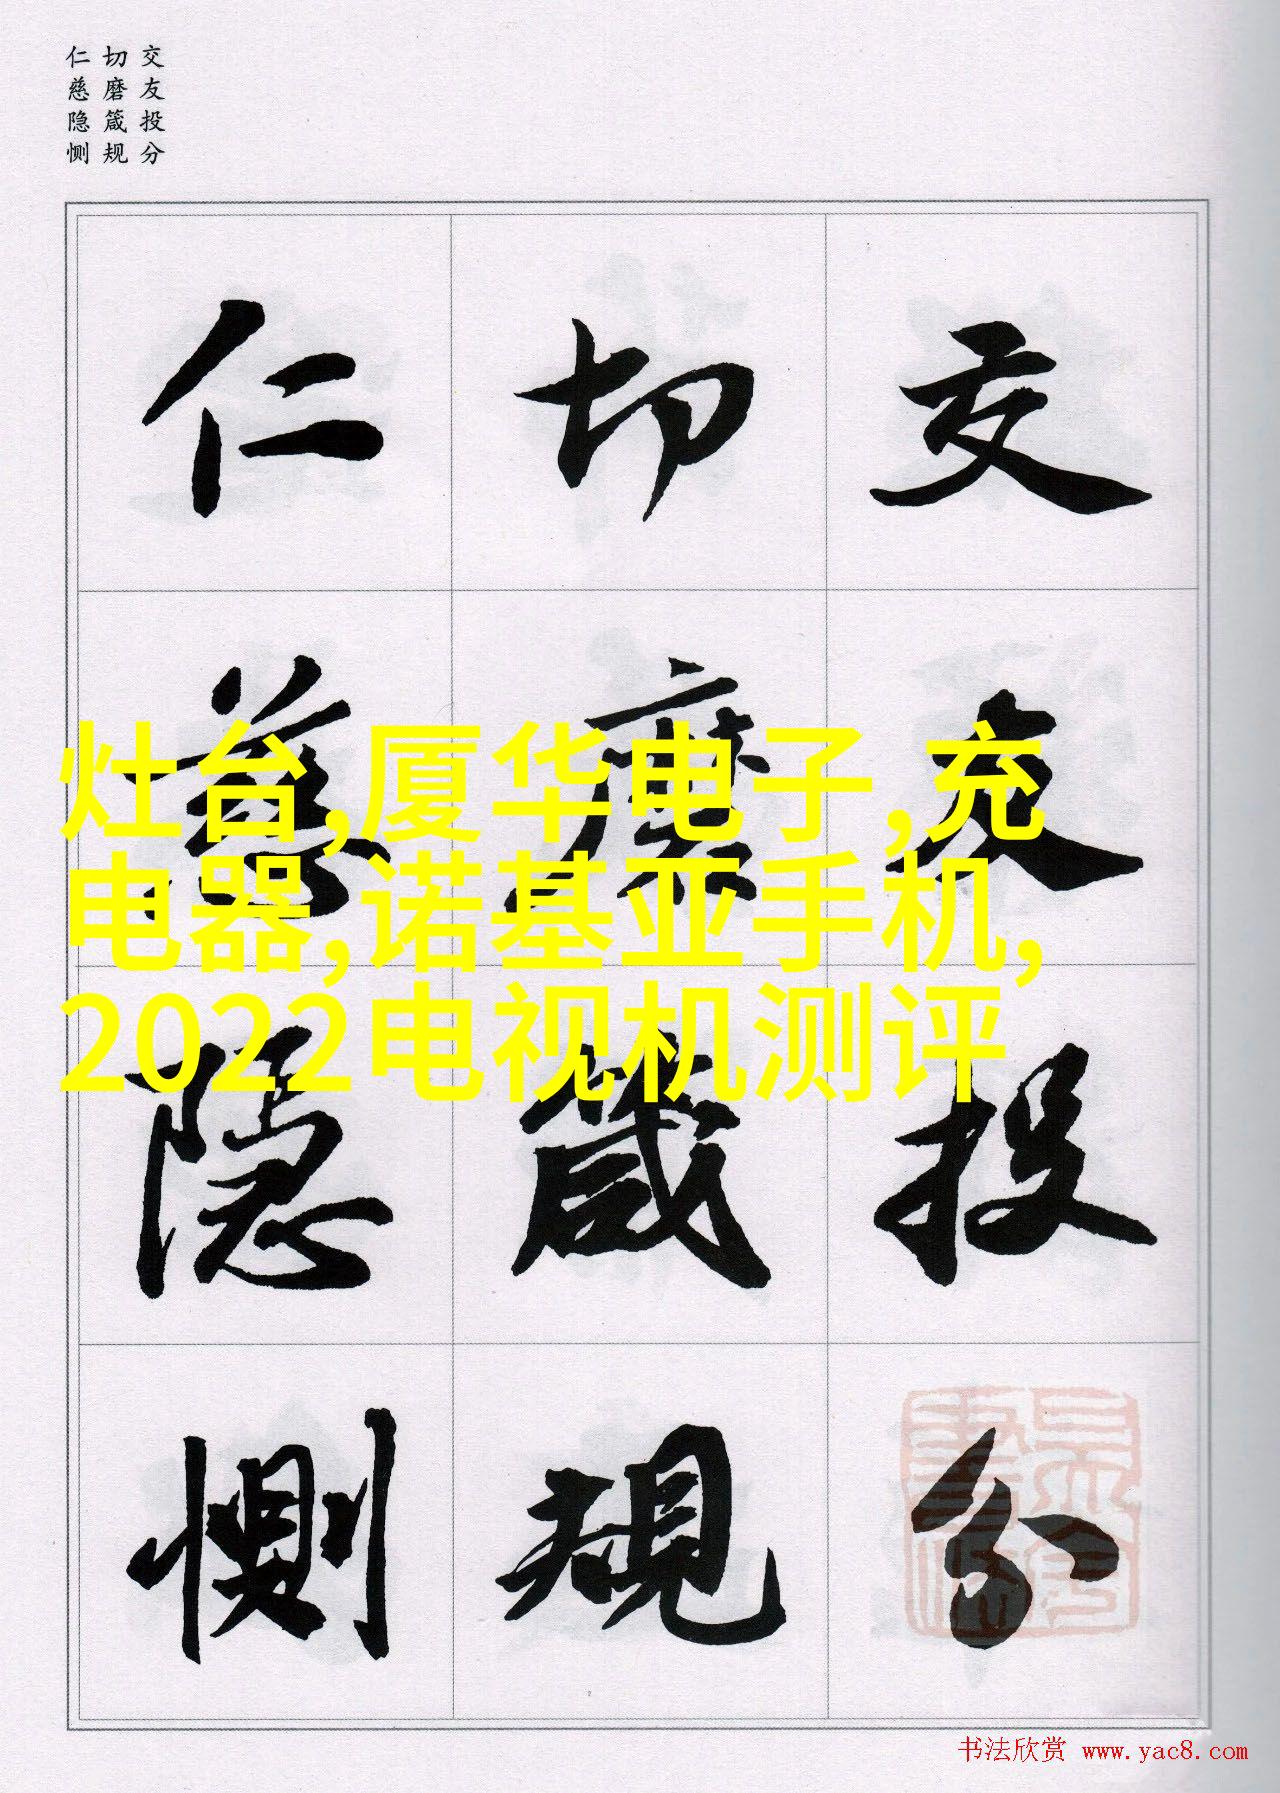 交友投分
切磨箴规
仁慈隐恻
交友投分
切磨箴規
仁慈隐惻
灶台,厦华电子,充
电器,诺基亚手机,
2022电视机测评
书法欣赏 www.yac8.com